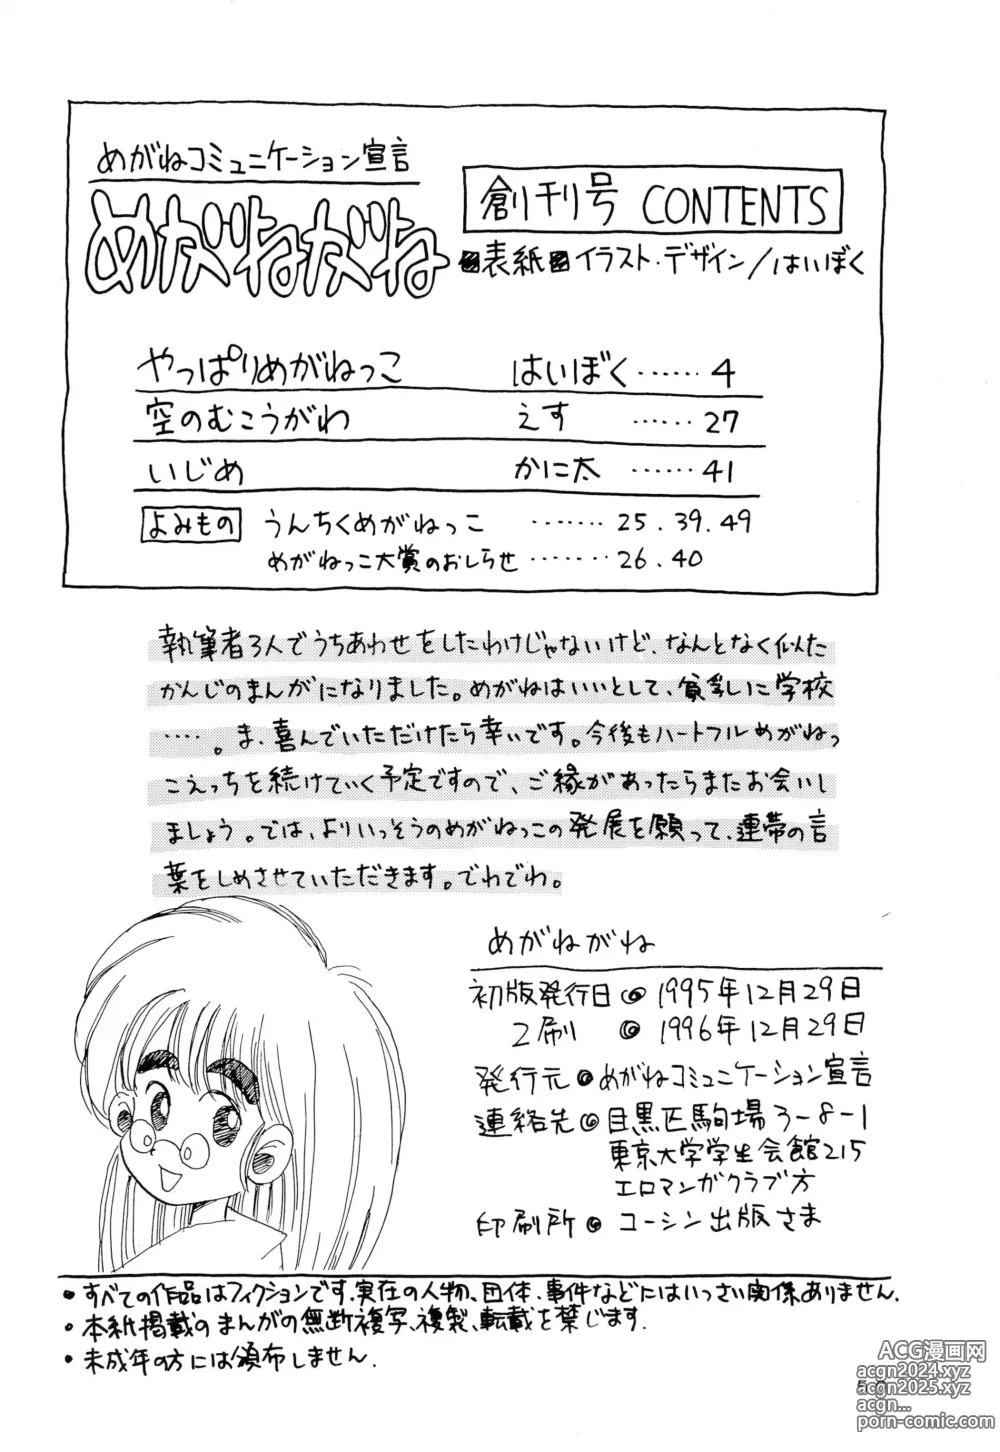 めがねコミュニケーション宣言
めがねがね
創刊号 CONTENTS
表紙 イラスト・デザイン／はいぼく
やっぱりめがねっこ はいぼく……4
空のむこうがわ えす ……27
いじめ かに太 ……41
よみもの うんちくめがねっこ ……25.39.49
めがねっこ大賞のおしらせ ……26.40
執筆者3人でうちあわせをしたわけじゃないけど、なんとなく似た
かんじのまんがになりました。めがねはいいとして、貧乳しに学校
…。ま、喜んでいただけたら幸いです。今後もハートフルめがねっ
こえっちを続けていく予定ですので、ご縁があったらまたお会いし
ましょう。では、よりいっそうのめがねっこの発展を願って、連帯の言
葉をしめさせていただきます。でわでわ。
めがねがね
初版発行日 1995年12月29日
2刷 1996年12月29日
発行元 めがねコミュニケーション宣言
連絡先 目黒区駒場3-8-1
東京大学学生会館215
エロマンガクラブ方
印刷所 コーシン出版さま
・すべての作品はフィクションです.実在の人物、団体、事件などにはいっさい関係ありません.
・本紙掲載のまんがの無断複写、複製、転載を禁じます.
・未成年の方には頒布しません.
ACG漫画网
acgn2024.xyz
acgn2025.xyz
acgn...
porn-comic.com